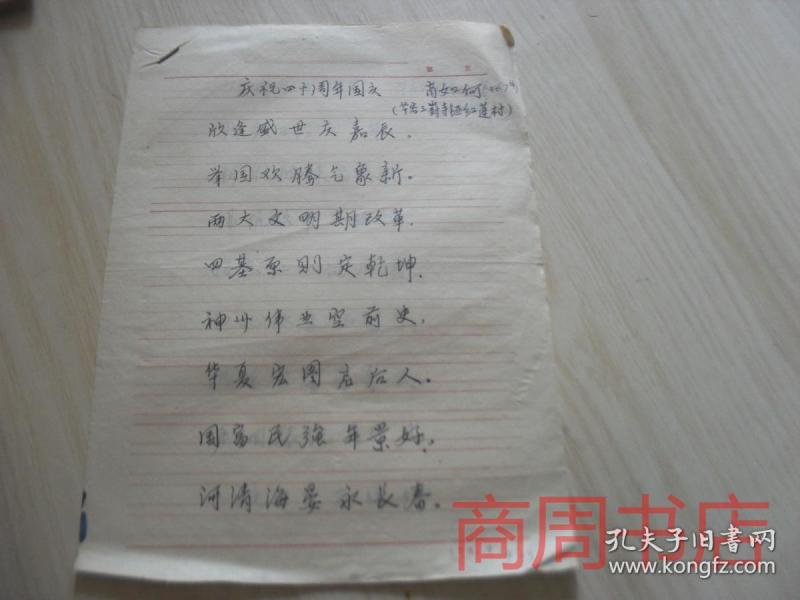 庆祝四十周年国庆 肖如何
欣逢盛世庆嘉辰,
举国欢腾气象新。
两大文明期改革,
四基原则定乾坤,
神州伟业空前史,
华夏宏图启后人。
国富民强年景好,
河清海晏永长春。
商周书店
孔夫子旧书网
www.kongfz.com